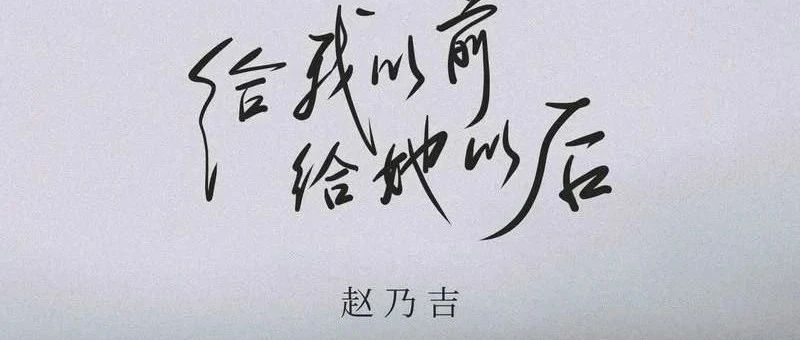 给我以前
给她以后
赵乃吉